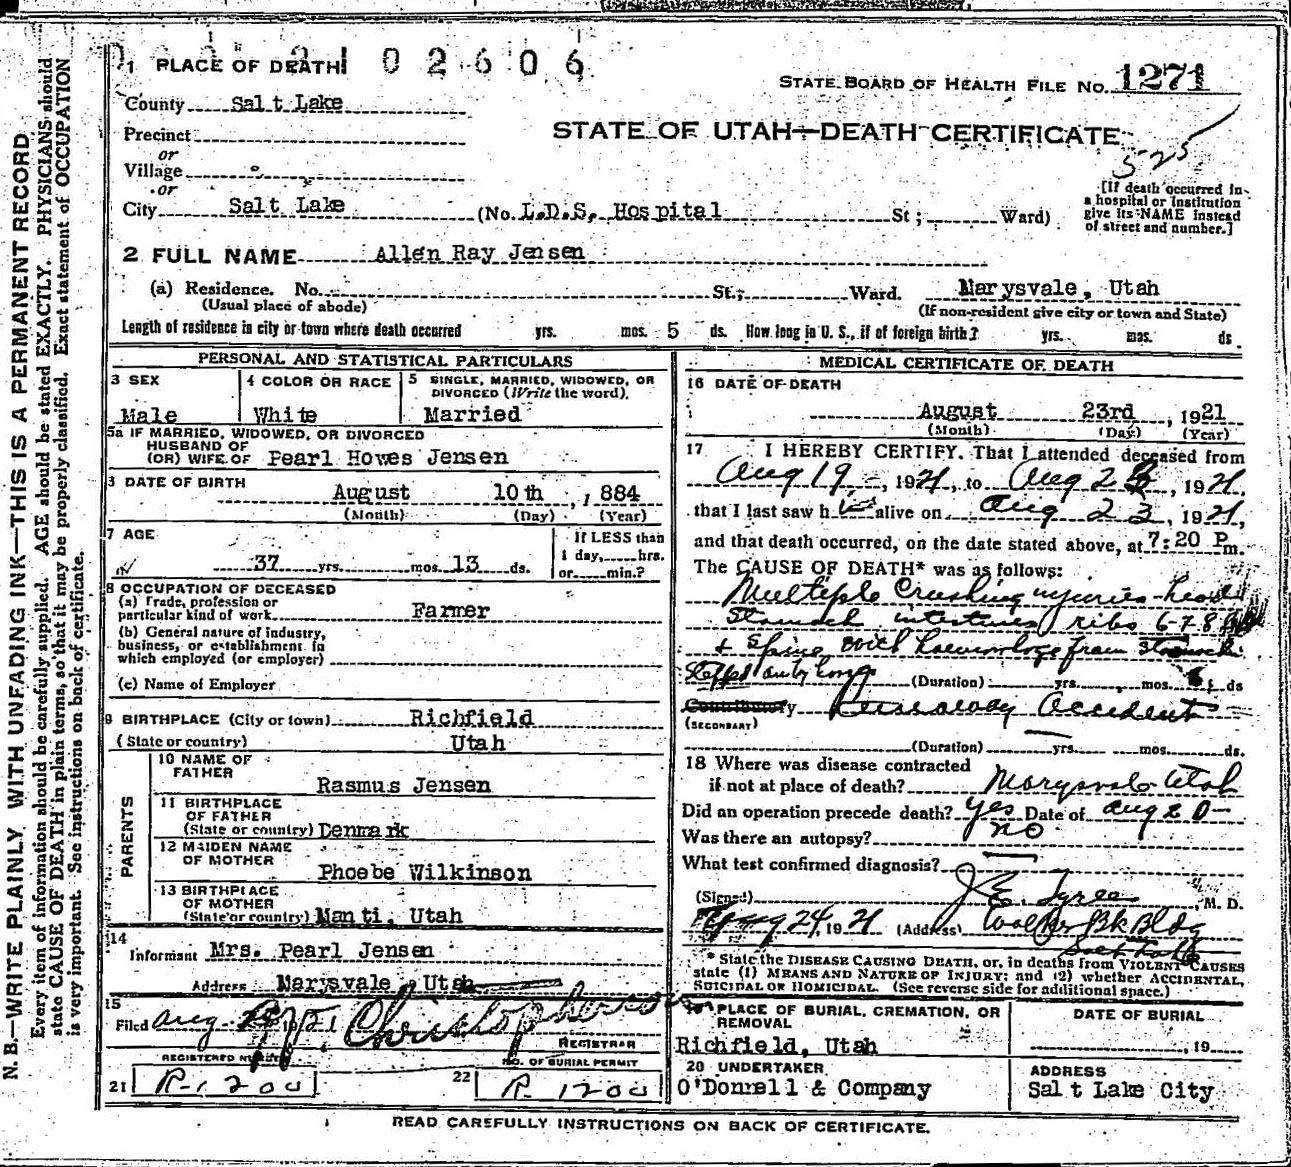 2 1 0 2 6 0 6
1 PLACE OF DEATH
STATE BOARD OF HEALTH FILE NO. 1271
County Salt Lake
STATE OF UTAH—DEATH CERTIFICATE
525
Precinct
or
Village
or
City Salt Lake (No. L.D.S. Hospital St; Ward)
[If death occurred in
a hospital or institution
give its NAME instead
of street and number.]
2 FULL NAME Allen Ray Jensen
(a) Residence. No. St.; Ward. Marysvale, Utah
(Usual place of abode) (If non-resident give city or town and State)
Length of residence in city or town where death occurred yrs. mos. 5 ds. How long in U. S., if of foreign birth? yrs. mos. ds.
PERSONAL AND STATISTICAL PARTICULARS
3 SEX
Male
4 COLOR OR RACE
White
5 SINGLE, MARRIED, WIDOWED, OR
DIVORCED (Write the word).
Married
5a IF MARRIED, WIDOWED, OR DIVORCED
HUSBAND OF
(OR) WIFE OF Pearl Howes Jensen
DATE OF BIRTH
August 10th , 1884
(Month) (Day) (Year)
7 AGE
37 yrs. mos. 13 ds.
If LESS than
1 day, hrs.
or min.?
8 OCCUPATION OF DECEASED
(a) Trade, profession or
particular kind of work Farmer
(b) General nature of industry,
business, or establishment in
which employed (or employer)
(c) Name of Employer
9 BIRTHPLACE (City or town) Richfield
(State or country) Utah
PARENTS
10 NAME OF
FATHER
Rasmus Jensen
11 BIRTHPLACE
OF FATHER
(State or country) Denmark
12 MAIDEN NAME
OF MOTHER
Phoebe Wilkinson
13 BIRTHPLACE
OF MOTHER
(State or country) Manti, Utah
14
Informant Mrs. Pearl Jensen
Address Marysvale, Utah
15
Filed Aug 1921 Christopherson
REGISTRAR
REGISTERED NUMBER
21 R-1200
NO. OF BURIAL PERMIT
22 R-1200
MEDICAL CERTIFICATE OF DEATH
16 DATE OF DEATH
August 23rd , 1921
(Month) (Day) (Year)
17 I HEREBY CERTIFY. That I attended deceased from
Aug 19, 1921, to Aug 23, 1921,
that I last saw h alive on Aug 23, 1921,
and that death occurred, on the date stated above, at 7:20 P m.
The CAUSE OF DEATH* was as follows:
Multiple Crushing injuries head
Stomach intestines ribs 6-7-8
+ Spine with haemorrhage from Stomach
Stepped on by horse (Duration) yrs. mos. ds
Contributory Runaway Accident
(SECONDARY)
(Duration) yrs. mos. ds.
18 Where was disease contracted
if not at place of death? Marysvale Utah
Did an operation precede death? Yes Date of Aug 20
Was there an autopsy? no
What test confirmed diagnosis?
(Signed) J.E. Tyree, M. D.
Aug 24, 1921 (Address) Walker Bk Bldg
Salt Lake
* State the DISEASE CAUSING DEATH, or, in deaths from VIOLENT CAUSES
state (1) MEANS AND NATURE OF INJURY; and (2) whether ACCIDENTAL,
SUICIDAL OR HOMICIDAL. (See reverse side for additional space.)
19 PLACE OF BURIAL, CREMATION, OR
REMOVAL
Richfield, Utah
DATE OF BURIAL
, 19
20 UNDERTAKER
O'Donnell & Company
ADDRESS
Salt Lake City
READ CAREFULLY INSTRUCTIONS ON BACK OF CERTIFICATE.
N. B.—WRITE PLAINLY, WITH UNFADING INK—THIS IS A PERMANENT RECORD
Every item of information should be carefully supplied. AGE should be stated EXACTLY. PHYSICIANS should
state CAUSE OF DEATH in plain terms, so that it may be properly classified. Exact statement of OCCUPATION
is very important. See instructions on back of certificate.